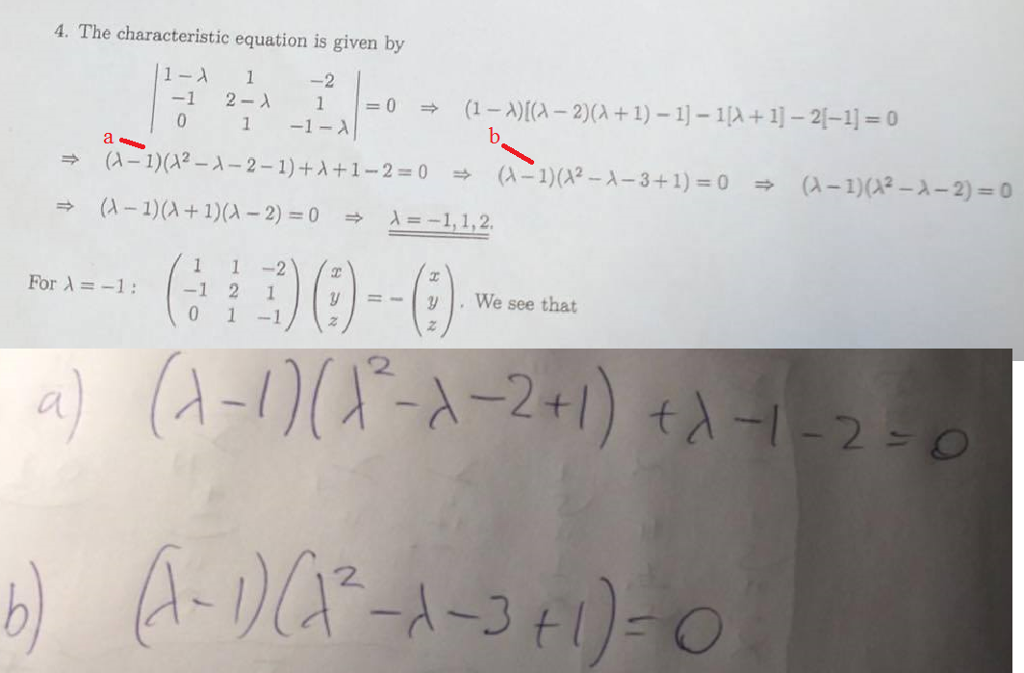 4. The characteristic equation is given by
| 1 − λ 1 −2 |
| −1 2 − λ 1 | = 0 ⇒ (1 − λ)[(λ − 2)(λ + 1) − 1] − 1[λ + 1] − 2[−1] = 0
| 0 1 −1 − λ |
a b
⇒ (λ − 1)(λ² − λ − 2 − 1) + λ + 1 − 2 = 0 ⇒ (λ − 1)(λ² − λ − 3 + 1) = 0 ⇒ (λ − 1)(λ² − λ − 2) = 0
⇒ (λ − 1)(λ + 1)(λ − 2) = 0 ⇒ λ = −1, 1, 2.
( 1 1 −2 ) ( x ) ( x )
For λ = −1 : ( −1 2 1 ) ( y ) = − ( y ) . We see that
( 0 1 −1 ) ( z ) ( z )
a) (λ−1)(λ²−λ−2+1) +λ−1−2=0
b) (λ−1)(λ²−λ−3+1)=0